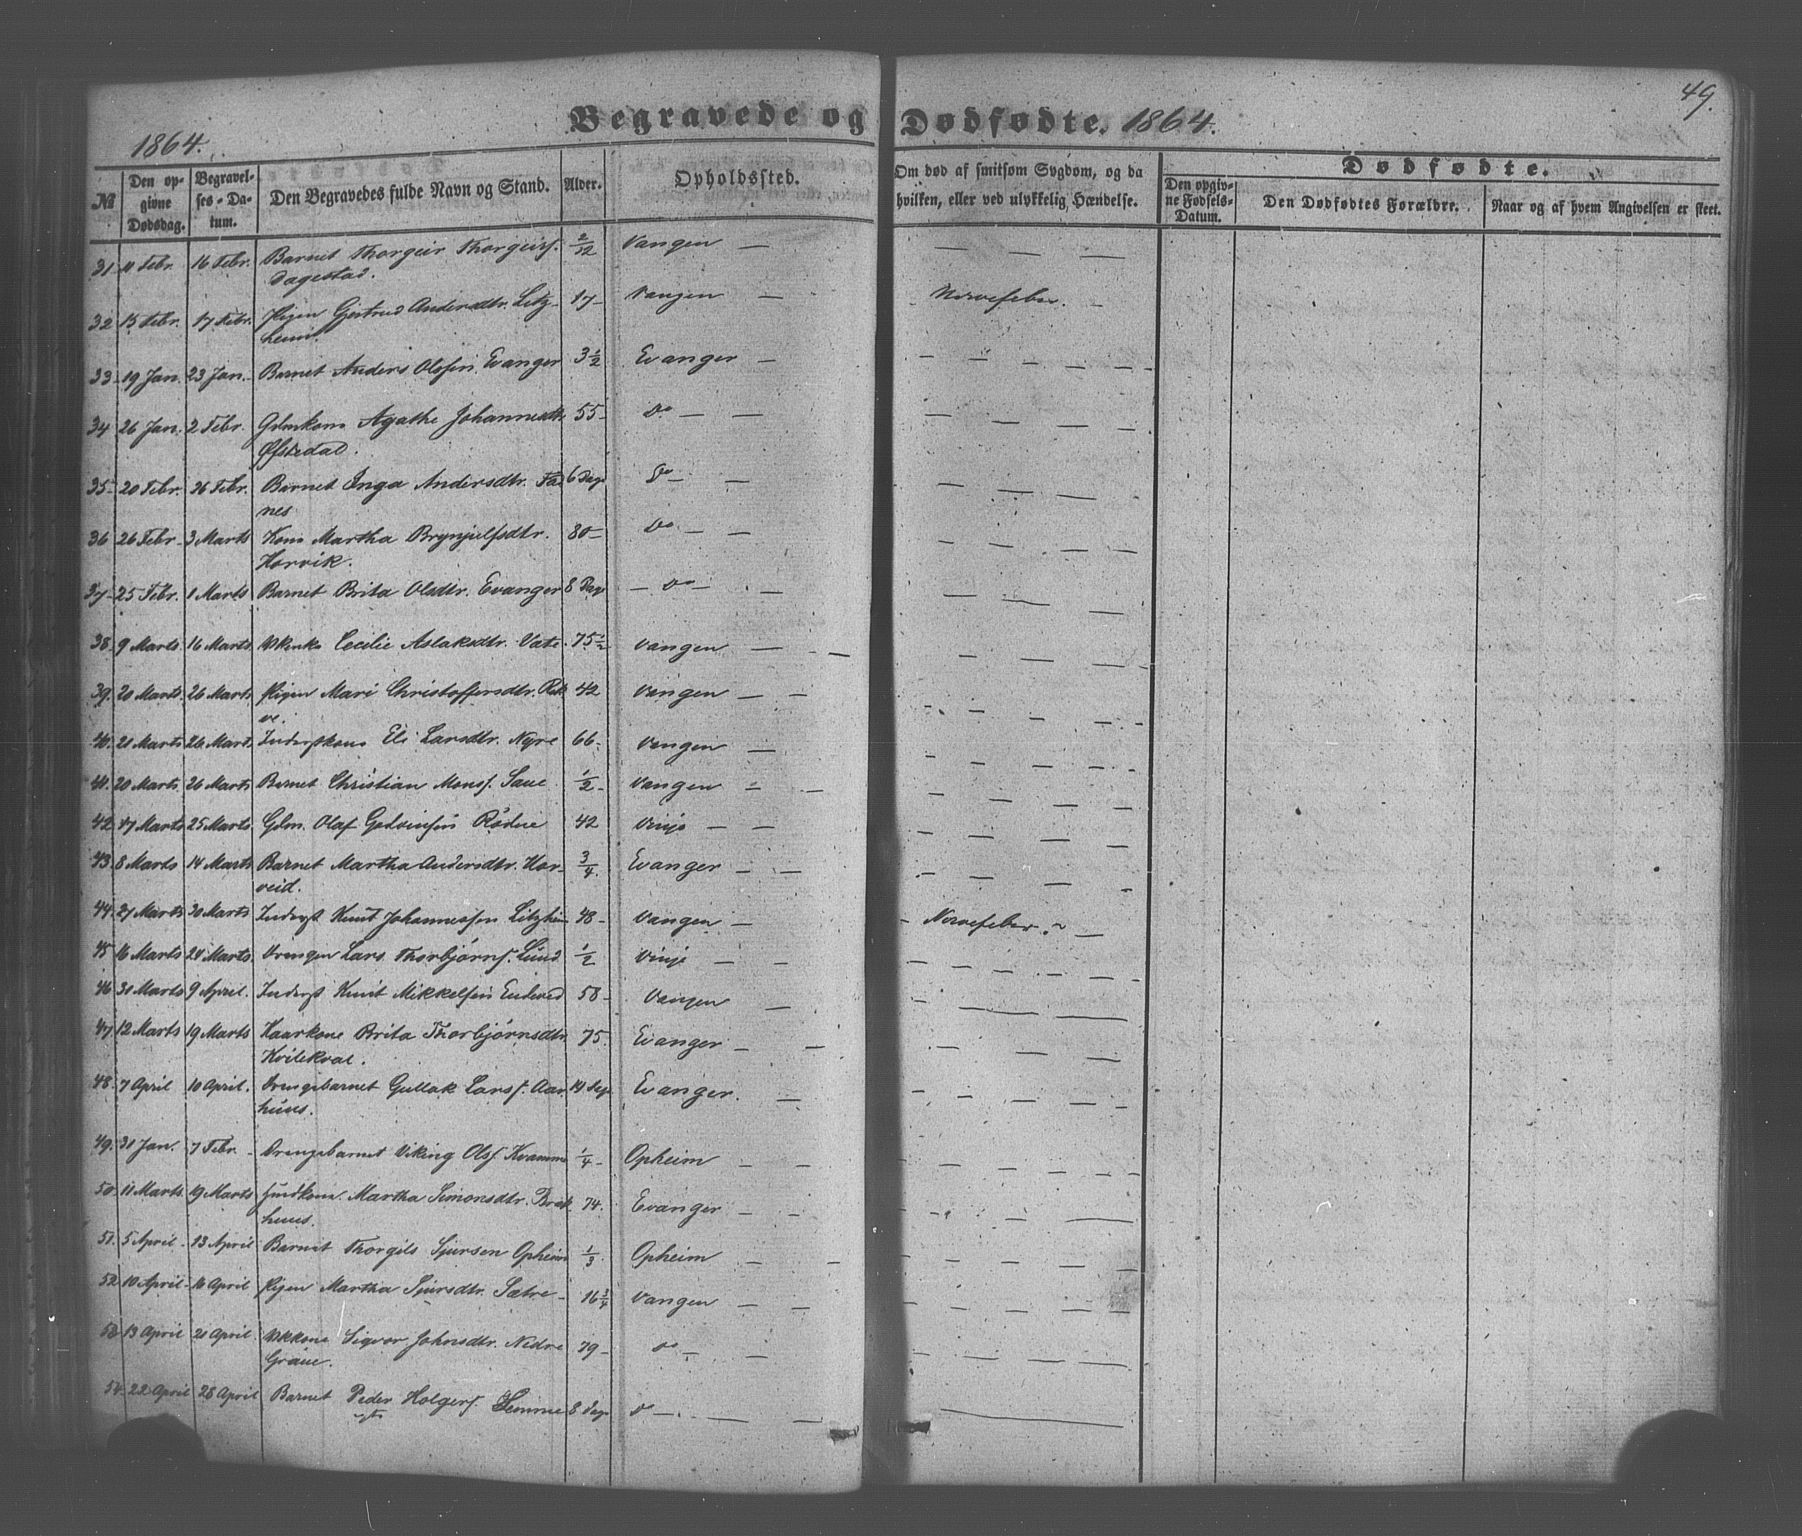 49.
Begravede og Dødfødte. 1864.
1864.
№ Den opgivne Dødsdag. Begravelses-Datum. Den Begravedes fulde Navn og Stand. Alder. Opholdssted. Om død af smitsom Sygdom, og da hvilken, eller ved ulykkelig Hændelse. Dødfødte. Den opgivne Fødsels-Datum. Den Dødfødtes Forældre. Naar og af hvem Angivelsen er skeet.
31 11 Febr. 16 Febr. Barnet Thorgeir Thorgeirs. 2/12 Vangen —
Dagestad.
32 15 Febr. 17 Febr. Pigen Gertrud Andersdtr. Litz- 17 — Vangen — Nervefeber. —
heim.
33 — 19 Jan. 23 Jan. — Barnet Anders Olsen Evanger 3 1/2 Evanger —
34 26 Jan. 2 Febr. Gdmkone Agathe Johannesdtr. 55 — Do — —
Øfstedal.
35 20 Febr. 26 Febr. Barnet Inga Andersdtr. Fad 6 Dage Do — —
nes
36 26 Febr — 3 Marts Kone Martha Brynjulfsdtr. 80 — Do — —
Horvik.
37 — 25 Febr. 1 Marts Barnet Brita Olsdtr. Evanger 8 Dage — Do — —
38. 9 Marts. 16 Marts. Cecilie Aslaksdtr. Vate 75 1/2 Vangen — —
39. 20 Marts. 26 Marts. Pigen Mari Christoffersdtr. Rek 42 Vangen — —
ve.
40. 21 Marts 26 Marts. Inderstkone Eli Larsdtr. Nyre 66 — Vangen —
41. 20 Marts. 26 Marts Barnet Christian Mons. Saue 1/2 — Vangen — —
42 17 Marts 25 Marts. Gdm. Olaf Rødne 42 Vinje — —
43. 8 Marts 14 Marts Barnet Martha Andersdtr. Hor- 3/4. Evanger — —
veid.
44. 27 Marts 30 Marts. Inderst Knut Johannessen Litzheim 48 — Vangen — Nervefeber. —
45 16 Marts 24 Marts. Drengen Lars Thorbjørns. Lund. 1/2 Vinje — —
46 31 Marts 9 April. Inderst Knut Mikkelsen 58 — Vangen — —
47 12 Marts 19 Marts Kaarkone Brita Thorbjørnsdtr. 75. Evanger — —
Kvitekval.
48. 7 April 10 April. Drengebarnet Gullak Lars. Aar 14 Dage Evanger. —
huus.
49. 31 Jan. 7 Febr. — Drengebarnet Viking Ols. Kvamme 1/4 — Opheim — —
50. 11 Marts. 19 Marts Martha Simonsdtr. Brek 74. Evanger — —
huus.
51. 5 April — 13 April Barnet Thorgils Sjursen Opheim 1/3. Opheim — —
52. 10 April — 16 April Pigen Martha Sjursdtr. Sætre — 16 3/4 Vangen — —
53 13 April 21 April Sigvor Johnsdtr. Nedre 79 — Do — —
Graue.
54. 22 April 28 April Barnet Peder Holgers. 8 Dage Do — — —